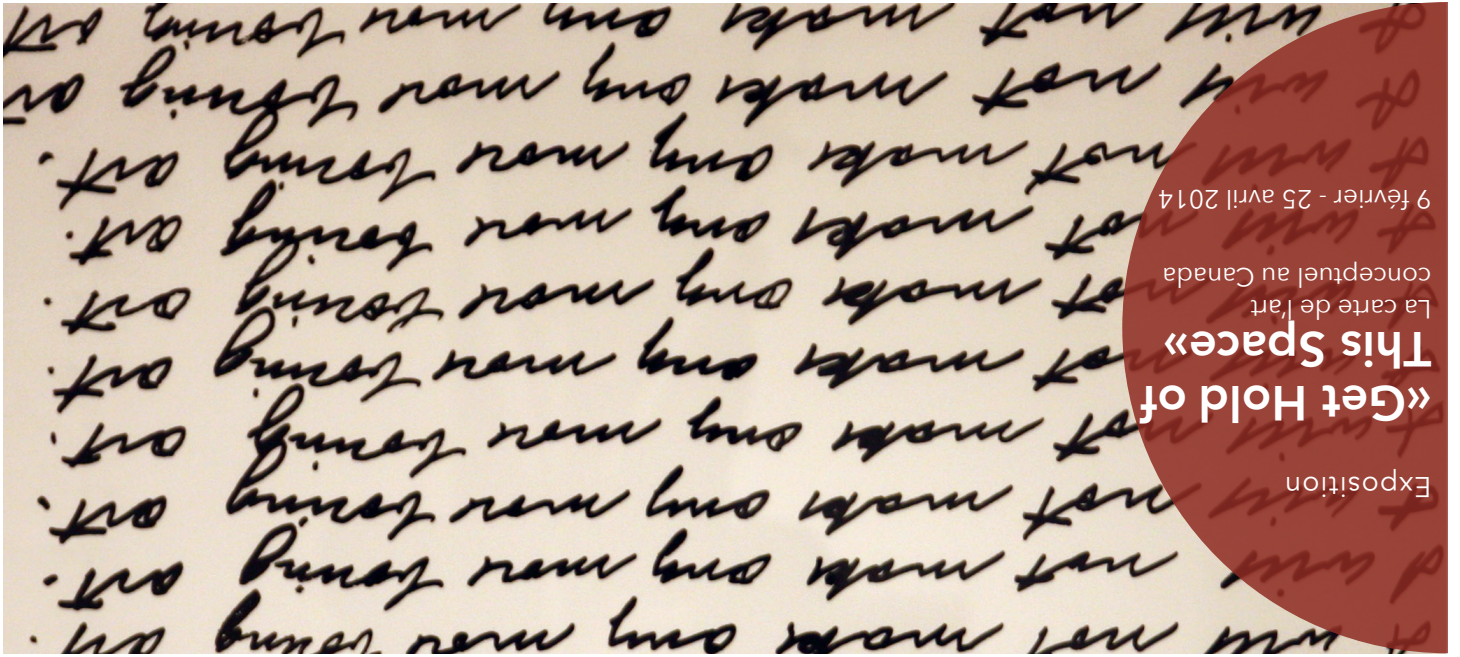 Exposition
«Get Hold of
This Space»
La carte de l'art
conceptuel au Canada
9 février - 25 avril 2014
I will not make any more boring art.
I will not make any more boring art.
I will not make any more boring art.
I will not make any more boring art.
I will not make any more boring art.
I will not make any more boring art.
I will not make any more boring art.
I will not make any more boring art.
I will not make any more boring ar
I will not make any more boring art